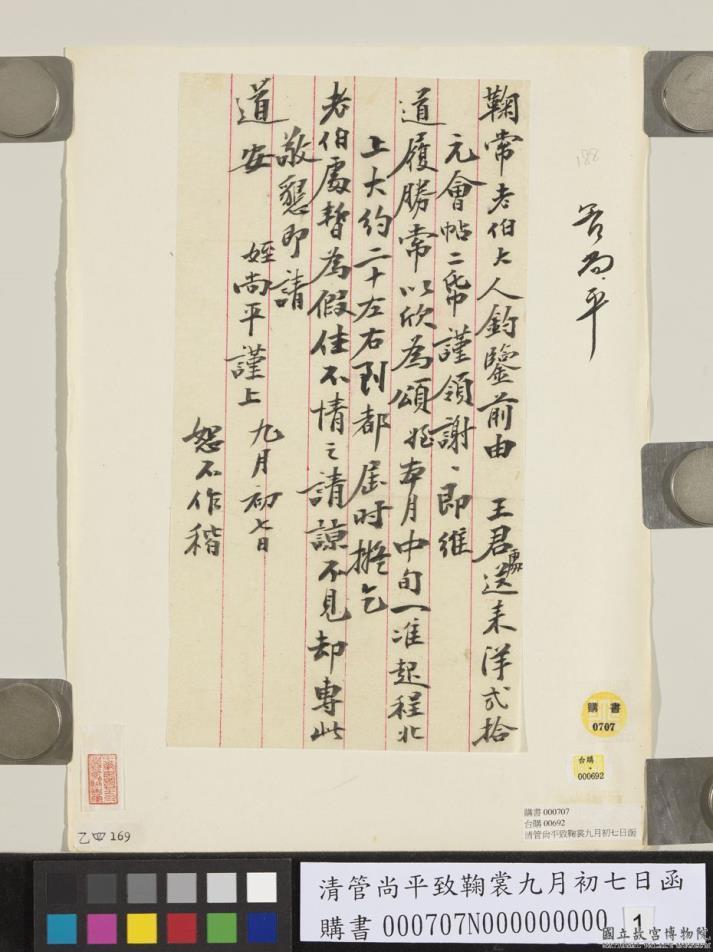 鞠常老伯大人鈞鑒前由 王君處送来洋弍拾
元會帖二帋謹領謝、即維
道履勝常以欣為頌姪本月中旬一准起程北
上大約二十左右到都屆时擬乞
老伯處暫為假住不情之請諒不見却專此
敬懇即請
道安
姪尚平謹上 九月初七日
恕不作楷
188
管尚平
購書
0707
台購
000692
購書 000707
台購 00692
清管尚平致鞠裳九月初七日函
乙四 169
清管尚平致鞠裳九月初七日函
購書 000707N000000000 1
國立故宮博物院